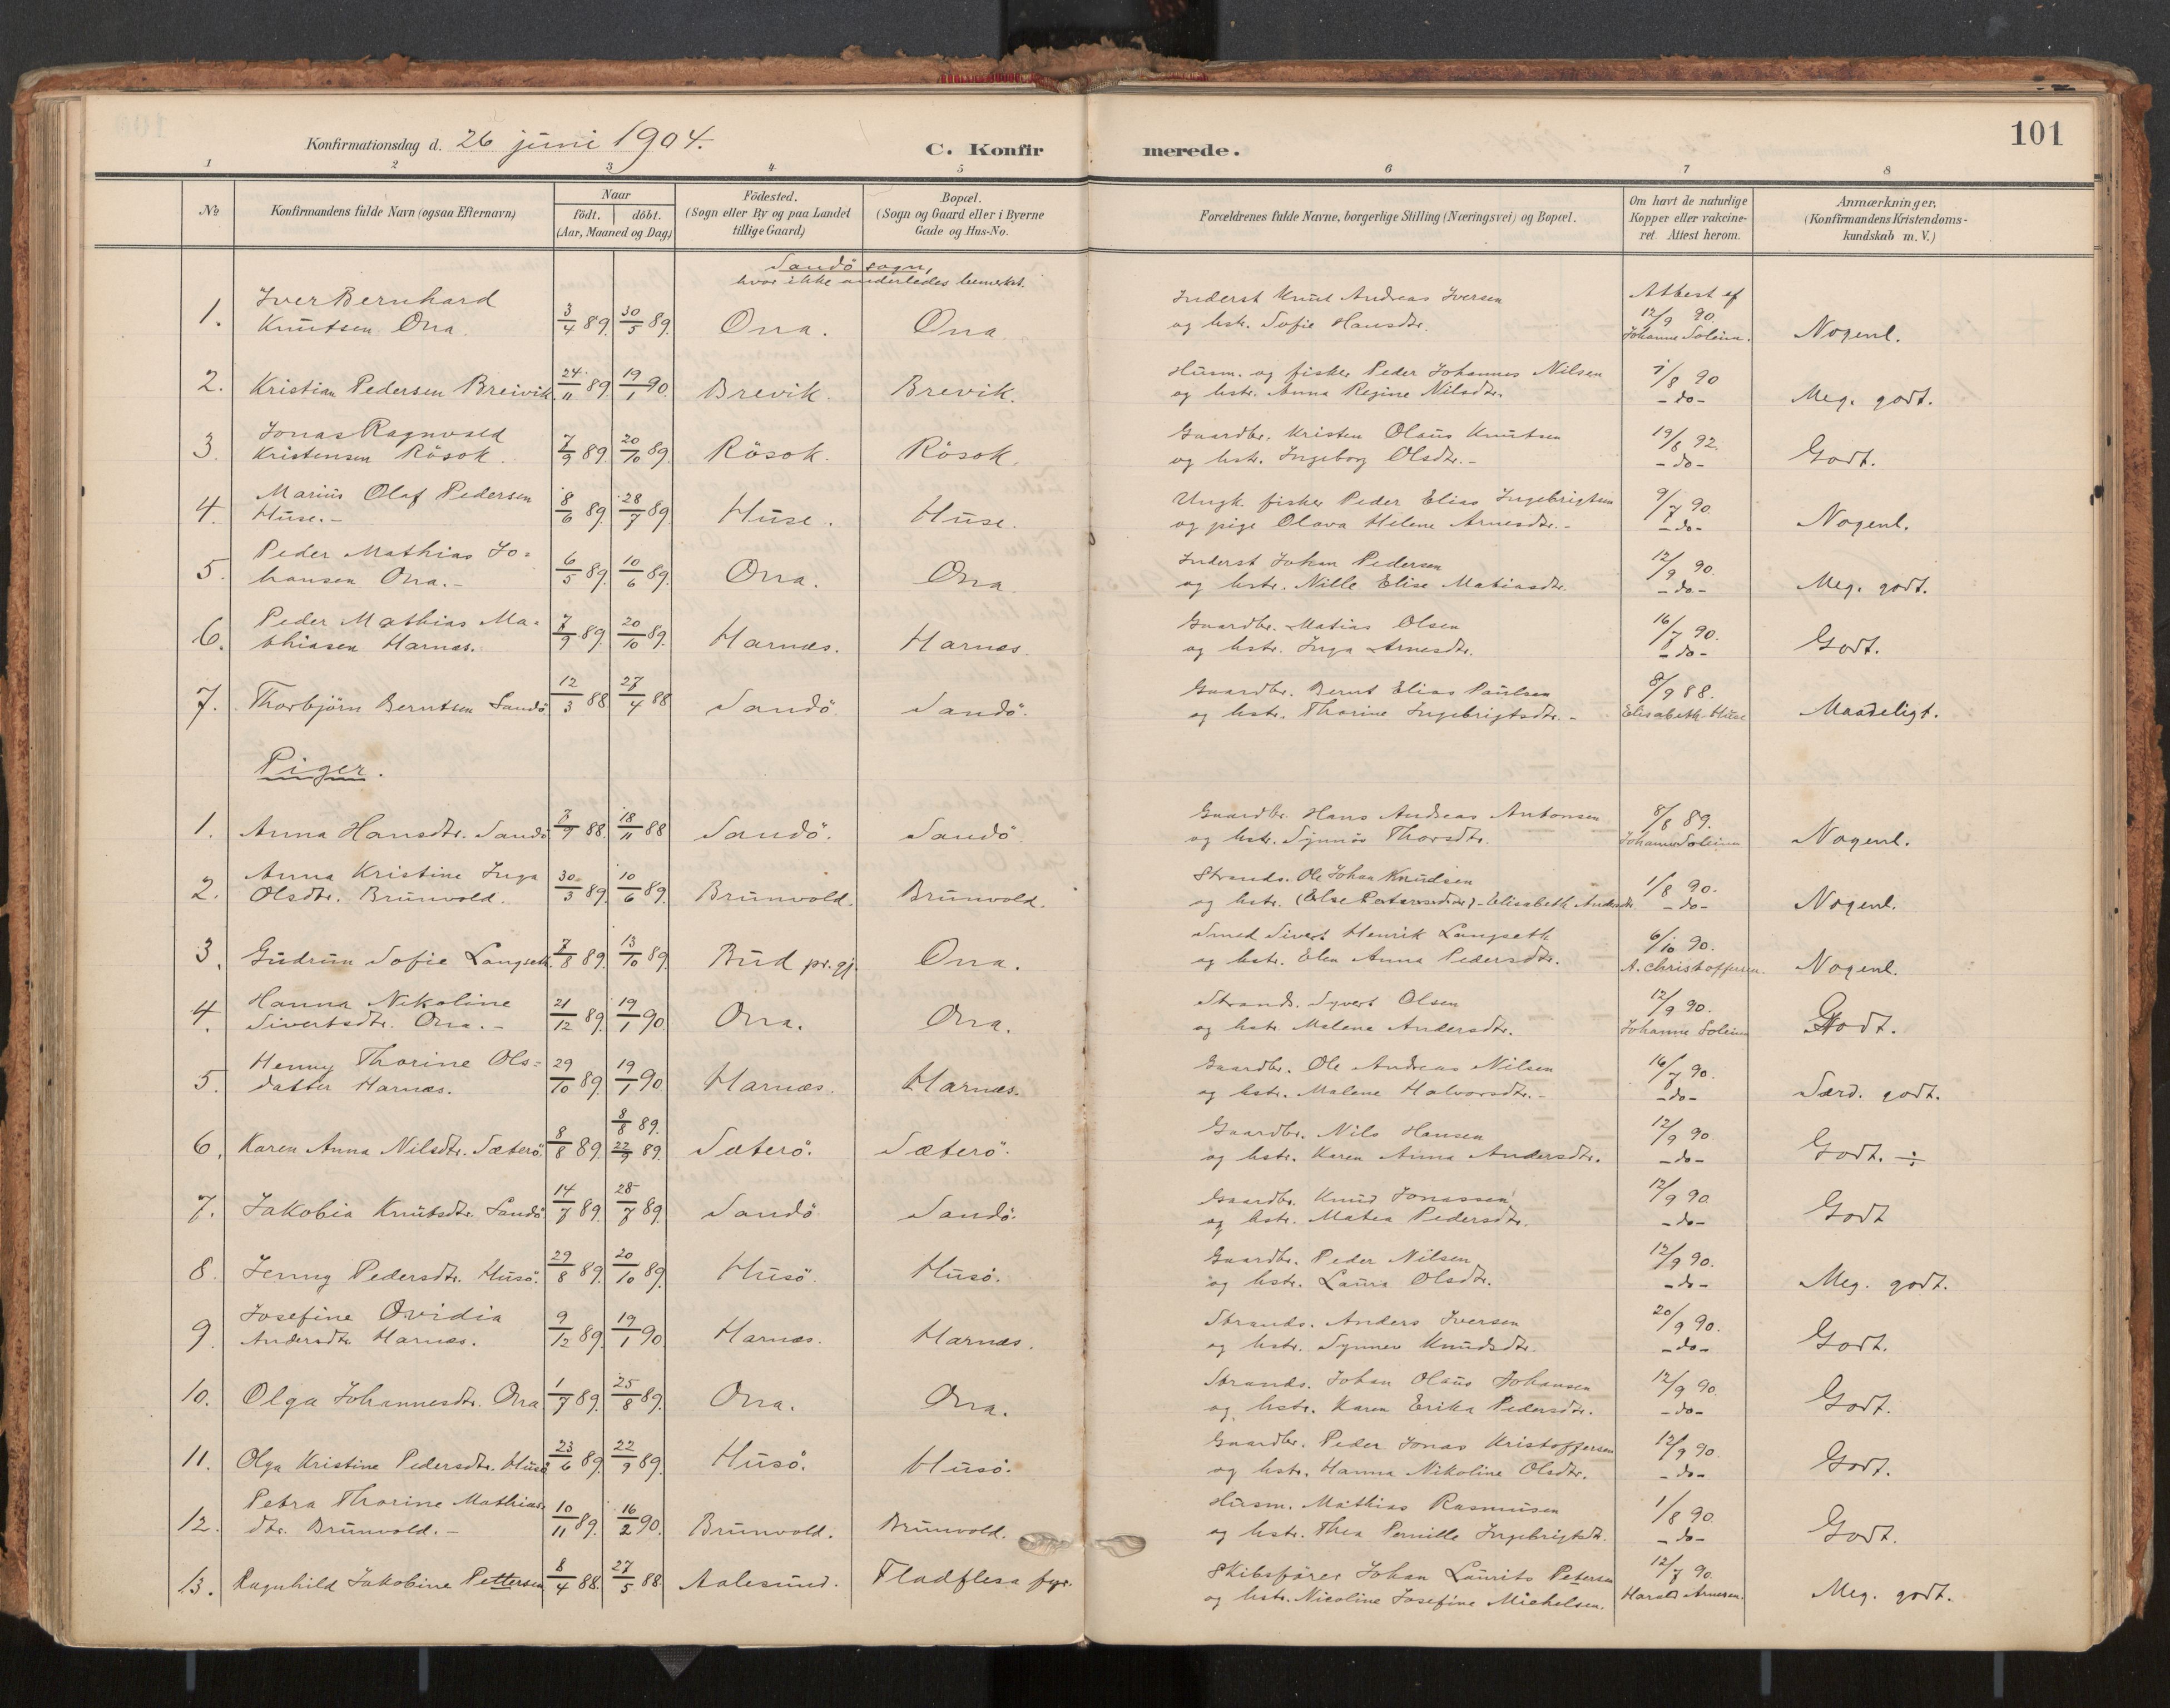 101
Konfirmationsdag d. 26 juni 1904.
C. Konfirmerede.
1 2 3 4 5 6 7 8
No
Konfirmandens fulde Navn (ogsaa Efternavn)
Naar
födt. döbt.
(Aar, Maaned og Dag)
Födested.
(Sogn eller By og paa Landet
tillige Gaard)
Bopæl.
(Sogn og Gaard eller i Byerne
Gade og Hus-No.
Forældrenes fulde Navne, borgerlige Stilling (Næringsvei) og Bopæl.
Om havt de naturlige
Kopper eller vakcine-
ret. Attest herom.
Anmærkninger.
(Konfirmandens Kristendoms-
kundskab m. V.)
Sandö sogn,
hvor ikke anderledes bemerket.
Iver Bernhard Inderst Knut Andreas Iversen Attest af
1. Knutsen Ona. 3/4 89. 30/5 89. Ona. Ona og hstr. Sofie Hansdtr. 12/9 90. Johanne Soleim. Nogenl.
Husm. og fisker Peder Johannes Nilsen 1/8 90
2. Kristian Pedersen Breivik. 24/11 89. 19/1 90. Brevik. Brevik. og hstr. Anna Regine Nilsdtr. -do- Meg. godt.
Jonas Ragnvald Gaardbr. Kristen Olaus Knutsen 19/8 92.
3. Kristensen Rösok. 7/9 89. 20/10 89. Rösok. Rösok. og hstr. Ingeborg Olsdtr.- -do- Godt.
Marius Olaf Pedersen Ungk. fisker Peder Elias Ingebrigtsen 9/7 90.
4. Huse.- 8/6 89. 28/7 89. Huse. Huse. og pige Olava Helene Arnesdtr.- -do- Nogenl.
Peder Mathias Jo= Inderst Johan Pedersen 12/9 90.
5. hansen Ona.- 6/5 89. 10/6 89. Ona. Ona og hstr. Nille Elise Matiasdtr. -do- Meg. godt.
Peder Mathias Ma= Gaardbr. Matias Olsen 16/7 90.
6. thiasen Harnæs. 7/9 89. 20/10 89. Harnæs. Harnæs. og hstr. Inga Arnesdtr. -do- Godt.
Gaardbr. Bernt Elias Paulsen 8/9 88.
7. Thorbjörn Berntsen Sandö 12/3 88 27/4 88 Sandö. Sandö. og hstr. Thorine Ingebrigtsdtr.- Elisabeth Huse Maadeligt.
Piger.
Gaardbr. Hans Andreas Antonsen 8/8 89.
1. Anna Hansdtr. Sandö 7/9 88. 18/11 88 Sandö. Sandö og hstr. Synnöv Thorsdtr. Johanne Soleim Nogenl.
Anna Kristine Inga Strands. Ole Johan Knudsen 1/8 90.
2. Olsdtr. Brunvold. 30/3 89. 10/6 89. Brunvold. Brunvold. og hstr. (Else Petersdtr) - Elisabeth Andersdtr. -do- Nogenl.
Smed Sivert Henrik Langseth 6/10 90.
3. Gudrun Sofie Langseth. 7/8 89. 13/10 89. Bud pr.gj. Ona. og hstr. Elen Anna Pedersdtr. A. Christoffersen. Nogenl.
Hanna Nikoline Strands. Syvert Olsen 12/9 90.
4. Sivertsdtr. Ona.- 21/12 89. 19/1 90. Ona. Ona. og hstr. Malena Andersdtr. Johanne Soleim Godt.
Henny Thorine Ols= Gaardbr. Ole Andreas Nilsen 16/7 90.
5. datter Harnæs. 29/10 89. 19/1 90. Harnæs. Harnæs. og hstr. Malene Halvorsdtr.- -do- Særd. godt.
8/8 89. Gaardbr. Nils Hansen 12/9 90
6. Karen Anna Nilsdtr. Sæterö. 8/8 89. 22/9 89. Sæterö. Sæterö. og hstr. Karen Anna Andersdtr. -do- Godt. ÷
Gaardbr. Knud Jonassen 12/9 90
7. Jakobia Knutsdtr. Sandö 14/7 89. 28/7 89. Sandö. Sandö. og hstr. Matea Pedersdtr. -do- Godt
Gaardbr. Peder Nilsen 12/9 90.
8. Jenny Pedersdtr. Husö. 29/8 89. 20/10 89. Husö. Husö. og hstr. Laura Olsdtr. -do- Meg. godt.
Josefine Ovidia Strands. Anders Iversen 20/9 90.
9. Andersdtr. Harnæs. 9/12 89. 19/1 90. Harnæs. Harnæs. og hstr. Synnev Knudsdtr. -do- Godt.
Strands. Johan Olaus Johansen 12/9 90.
10. Olga Johannesdtr. Ona 1/7 89. 25/8 89. Ona. Ona. og hstr. Karen Erika Pedersdtr. -do- Godt.
Gaardbr. Peder Jonas Kristoffersen 12/9 90.
11. Olga Kristine Pedersdtr. Husö 23/6 89. 22/9 89. Husö. Husö. og hstr. Hanna Nikoline Olsdtr. -do- Godt.
Petra Thorine Mathias Husm. Mathias Rasmusen 1/8 90.
12. dtr. Brunvold.- 10/11 89. 16/2 90. Brunvold. Brunvold. og hstr. Thea Pernille Ingebrigtsdtr. -do- Godt.
Skibsförer Johan Laurits Petersen 12/7 90.
13. Ragnhild Jakobine Pettersen 8/4 88. 27/5 88. Aalesund. Fladflesa fyr. og hstr. Nicoline Josefine Michelsen. Harald Arnesen. Meg. godt.